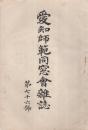 愛知師範同窓會雜誌
第七十六號